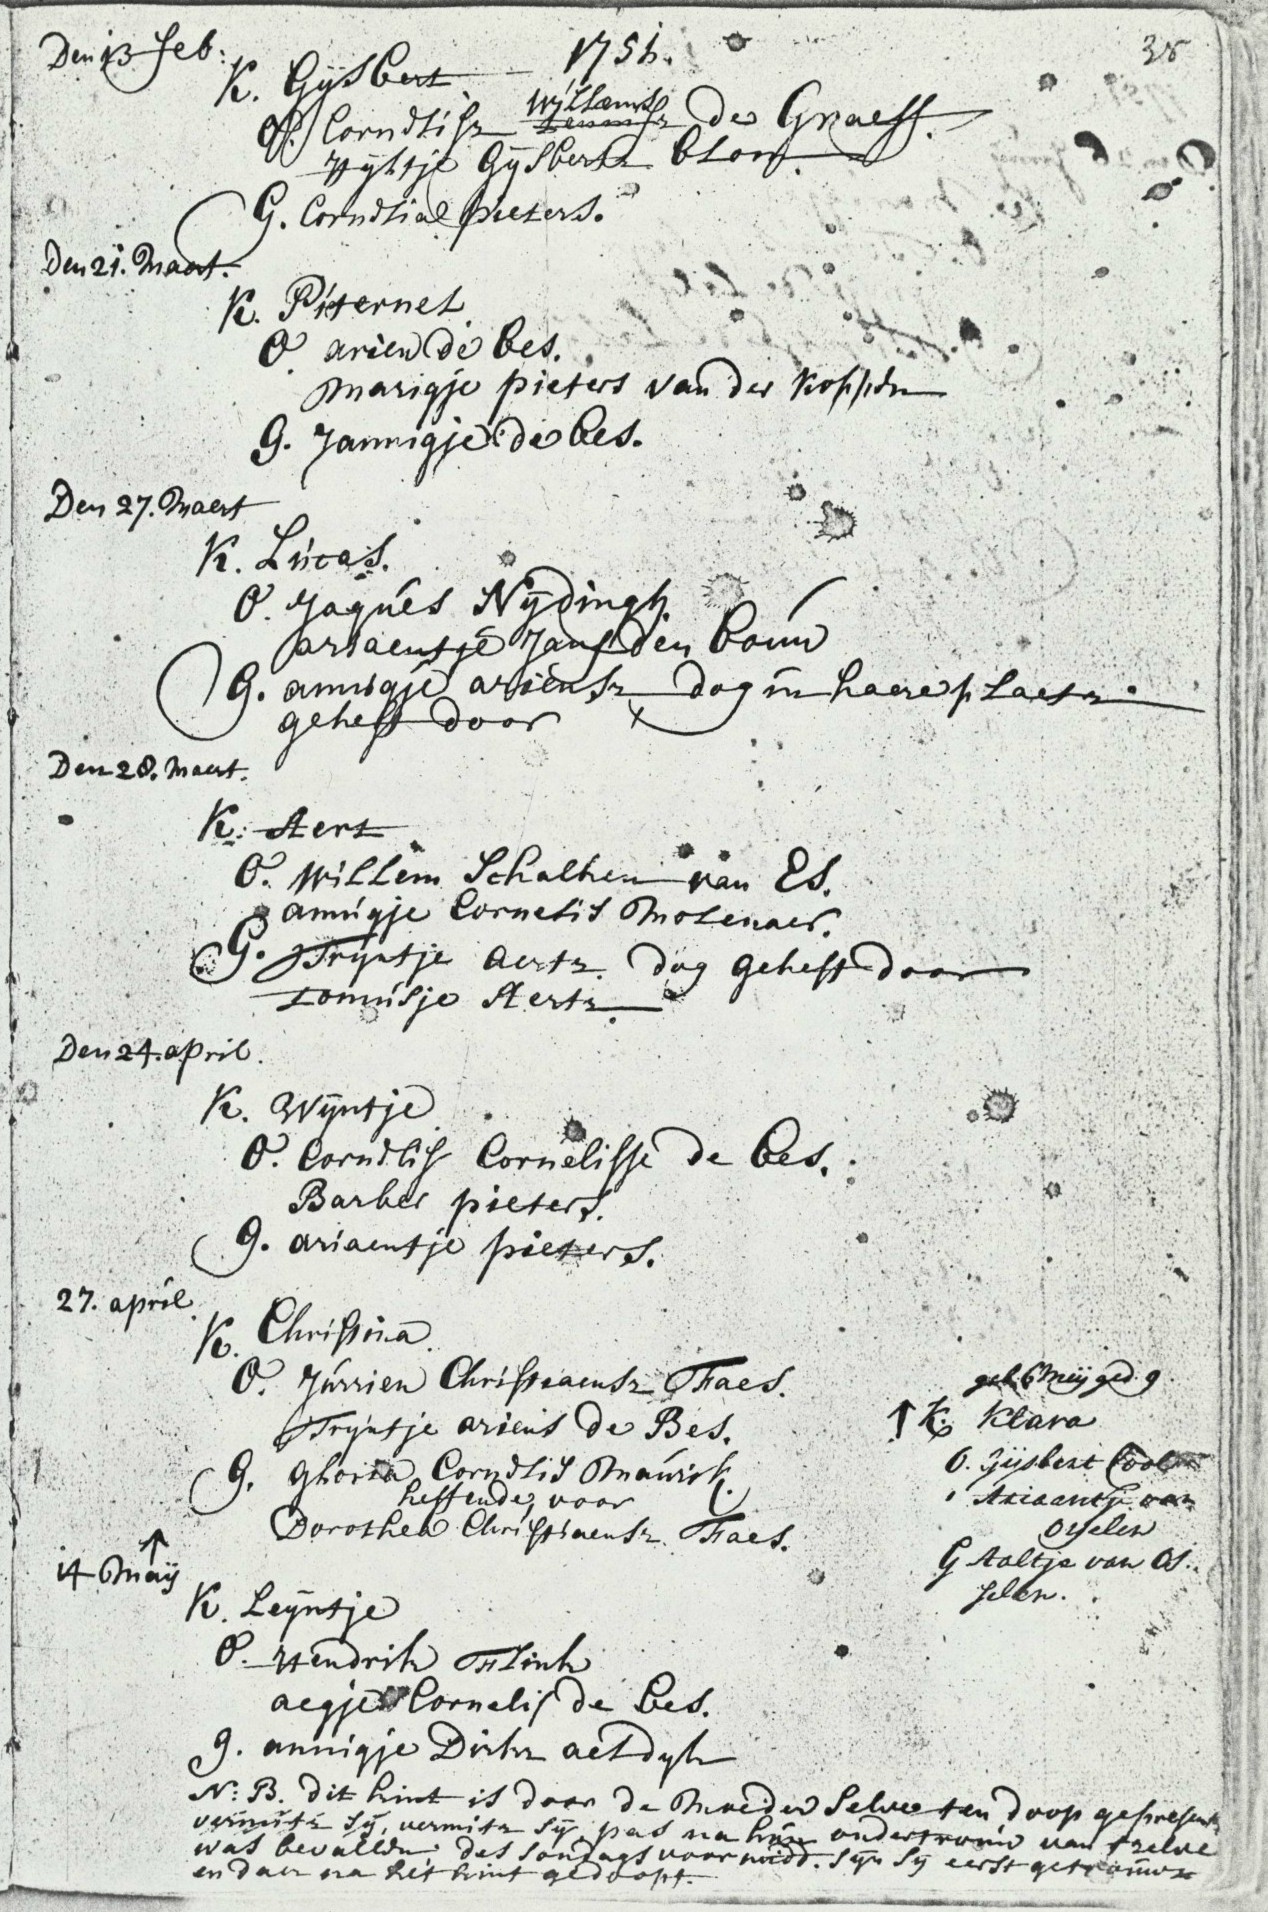 1751.
38
Den 13 feb:
K. Gijsbert
O. Cornelisz Willemsz de Graeff.
Gijsbertz Blom.
G. Cornelia pieters.
Den 21. Maert.
K. Piternel
O arien de Bes.
Marigje pieters van der Koppen
G. Jannigje de Bes.
Den 27. Maert
K. Lucas.
O. Jaques Nijdingh
ariaentje Jans den Bouw
G. annigje ariensz dog in haere plaetz
geheft door
Den 28. Maert.
K. Aert
O. Willem Schalken van Es.
annigje Cornelis Molenaer.
G. Trijntje Aertz. dog geheft door
Aertz.
Den 24. april.
K. Wijntje
O. Cornelis Cornelisse de Bes.
Barber pieters.
G. ariaentje pieters.
27. april
K. Christina.
O. Jurrien Christiaensz Faes.
Trijntje ariens de Bes.
G. Cornelis Maurik.
heffende voor
Dorothea Christiaensz Faes.
geb. 6 Meij ged. 9
↑ K. Klara
O. Gijsbert Cool
Ariaantje van
Osselen
G Aaltje van Os-
selen.
↑
14 Maij
K. Leijntje
O. Hendrik Flink
aegje Cornelis de Bes.
G. annigje Dirkz aeldyk
N: B. dit kint is door de Moeder Selve ten doop gepresent
vermitz sij, vermitz sij pas na hun ondertrouw van tzelve
was bevallen des sondags voormidd. sijn sij eerst getrouwt
en daer na het kint gedoopt.